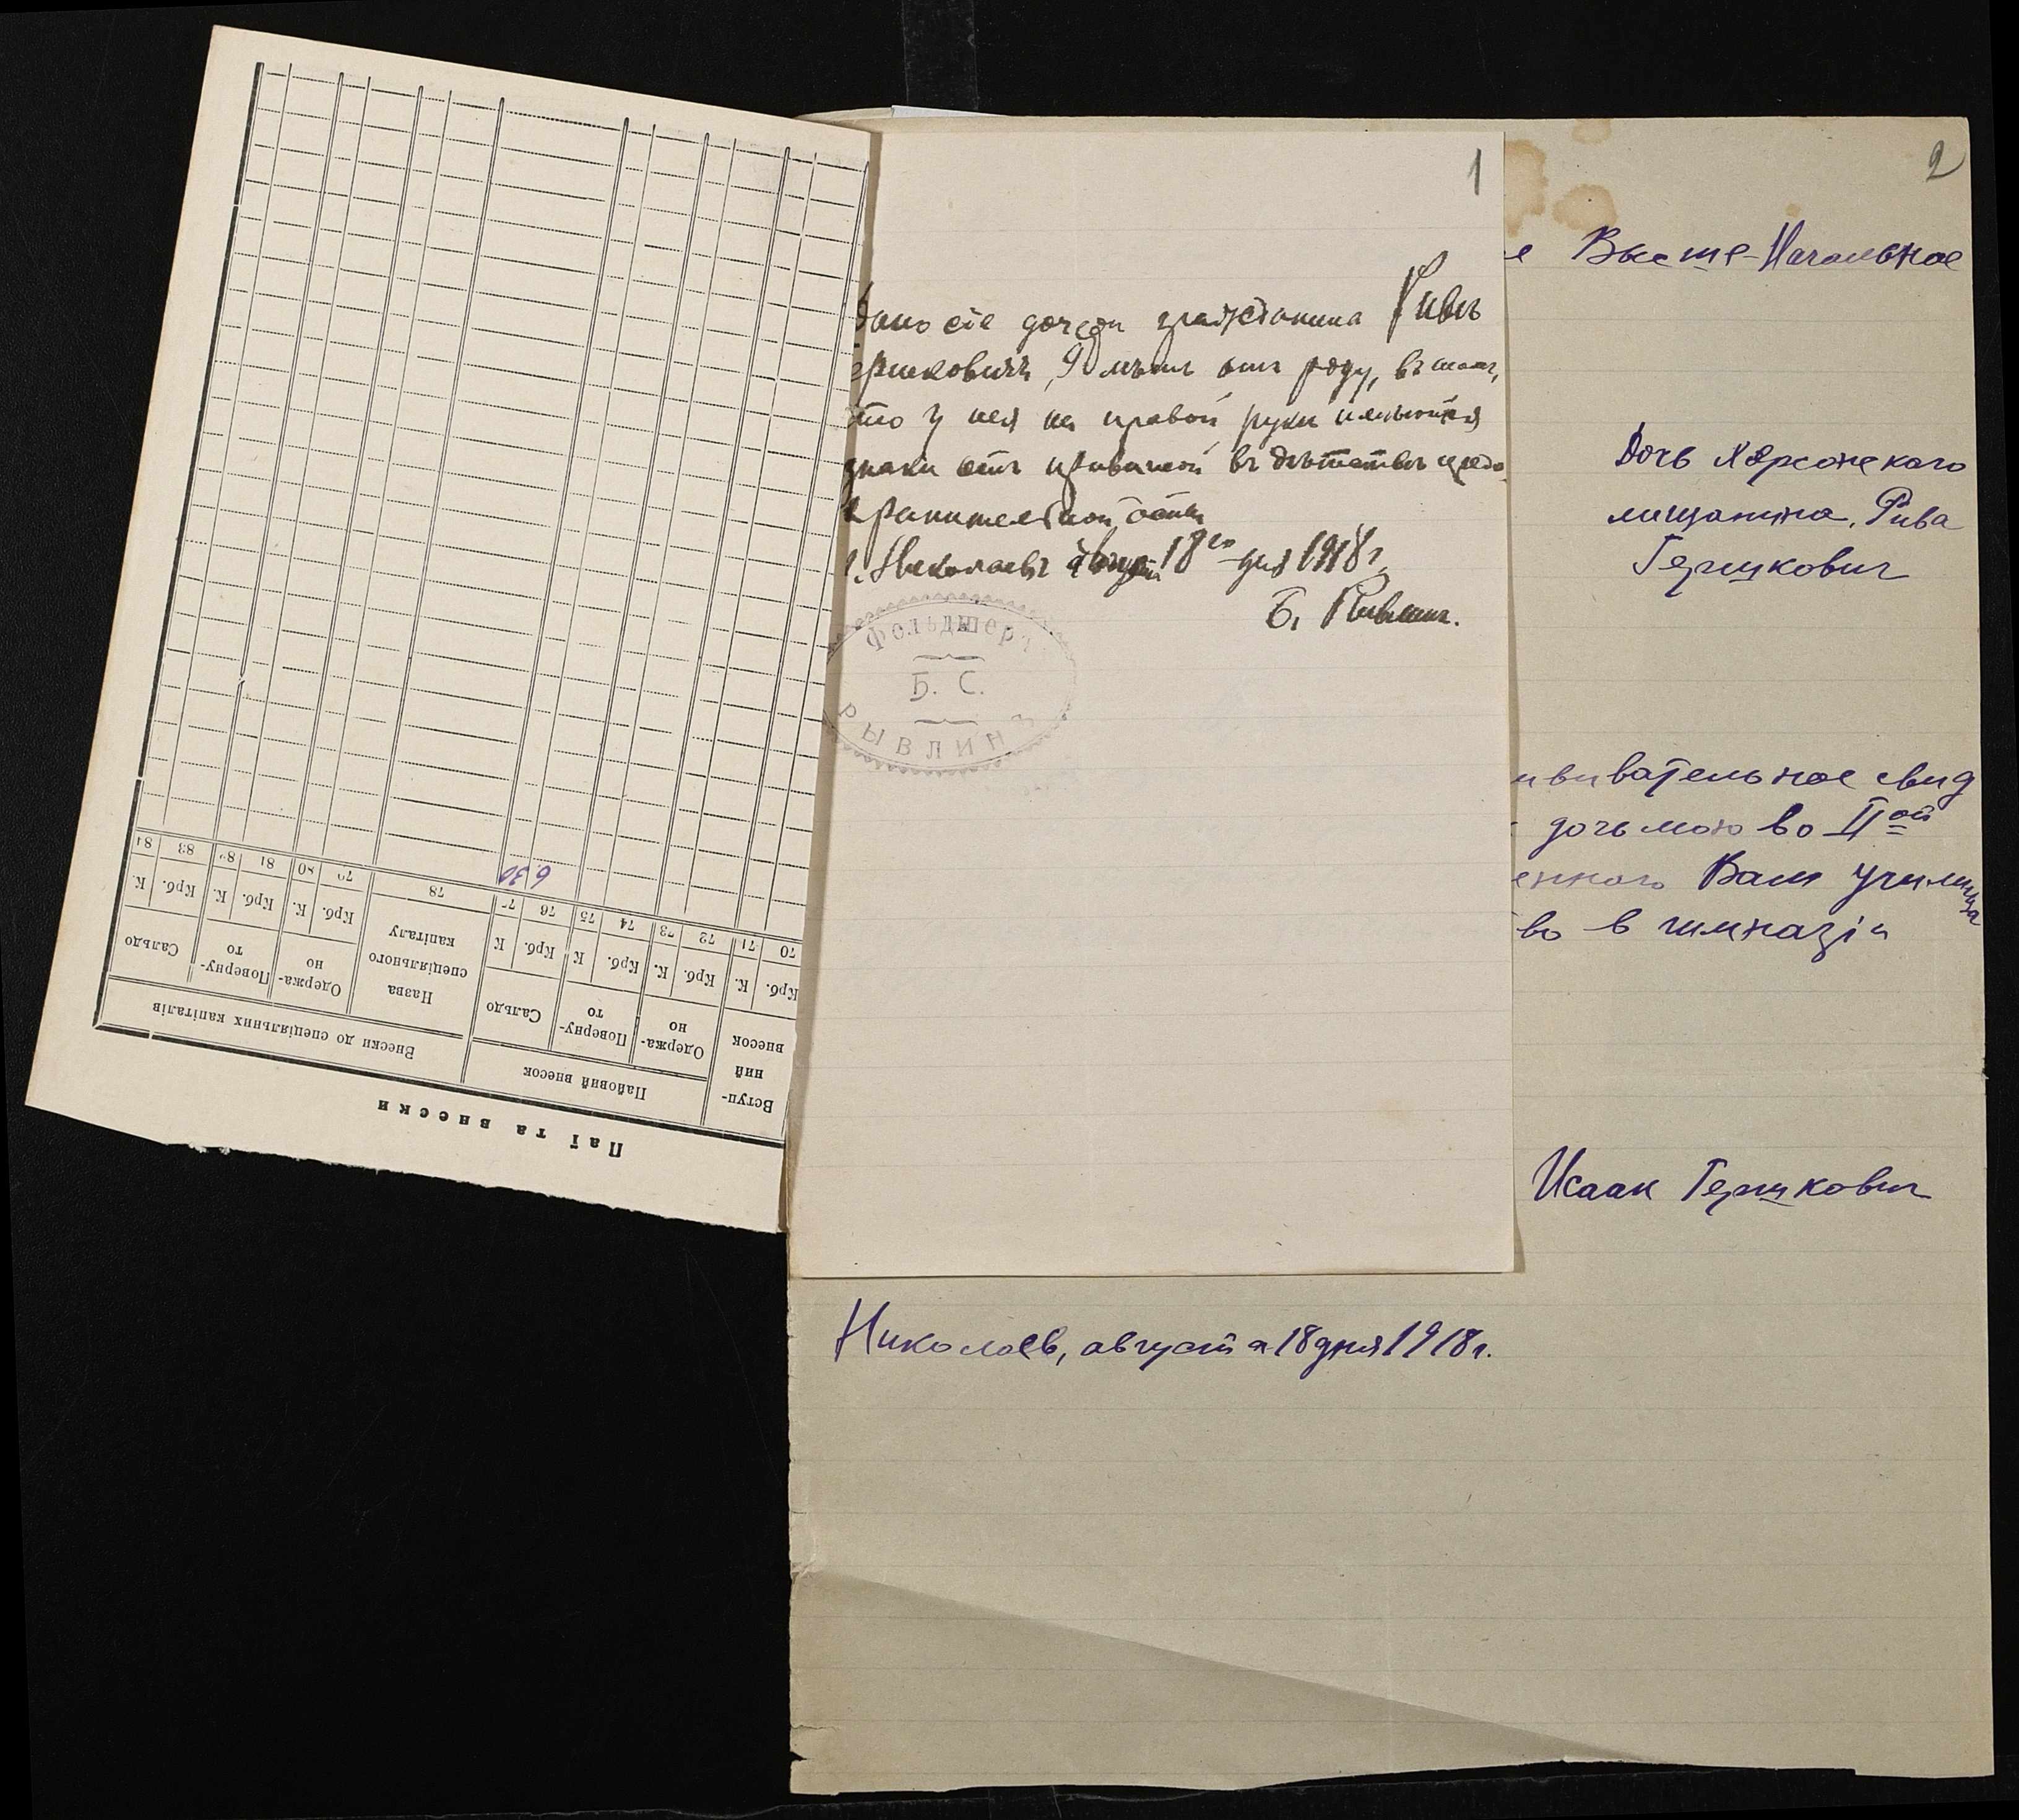 Паї та внески
Вступ-
ний
внесок
Пайовий внесок
Внески до спеціяльних капіталів
Одержа-
но
Поверну-
то
Сальдо
Назва
спеціяльного
капіталу
Одержа-
но
Поверну-
то
Сальдо
Крб. К. Крб. К. Крб. К Крб. К Крб. К. Крб. К. Крб. К.
70 71 72 73 74 75 76 77 78 79 80 81 82 83 84
6 30
1
Дано сіе дочери гражданина Ривѣ
ершковичъ, 9 лѣтъ отъ роду, въ томъ,
что у нея на правой руки имѣются
знаки отъ привитой въ дѣтствѣ предо
хранительной оспы
г. Николаевъ август 18го дня 1918 г.
Б. Рывлинъ.
Фельдшеръ
Б. С.
РЫВЛИНЪ
2
е Высше-Начальное
Дочь Херсонскаго
мещанина, Рива
Гершкович
ививательное свид
дочь мою во IIой
енного Вам училища
во в гимназіи
Исаак Гершкович
Николаев, августа 18 дня 1918 г.